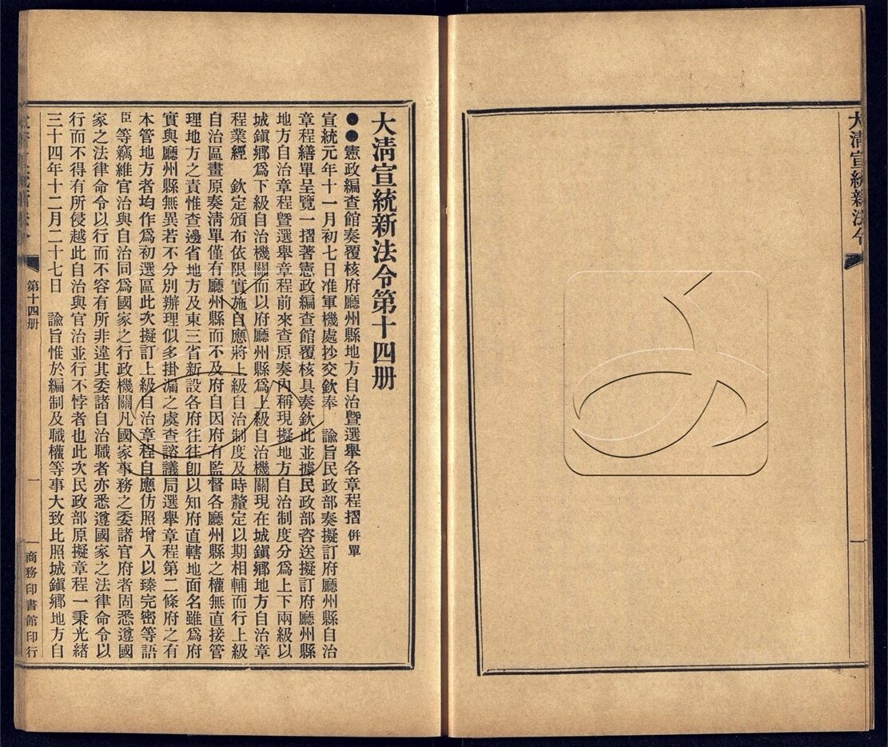 大清宣統新法令
大清宣統新法令第十四册
●●憲政編查館奏覆核府廳州縣地方自治暨選舉各章程摺 併單
宣統元年十一月初七日准軍機處抄交欽奉 諭旨民政部奏擬訂府廳州縣自治
章程繕單呈覽一摺著憲政編查館覆核具奏欽此並據民政部咨送擬訂府廳州縣
地方自治章程暨選舉章程前來查原奏內稱現擬地方自治制度分爲上下兩級以
城鎭鄕爲下級自治機關而以府廳州縣爲上級自治機關現在城鎭鄕地方自治章
程業經 欽定頒布依限實施自應將上級自治制度及時釐定以期相輔而行上級
自治區畫原奏淸單僅有廳州縣而不及府自因府有監督各廳州縣之權無直接管
理地方之責惟查邊省地方及東三省新設各府往往卽以知府直轄地面名雖爲府
實與廳州縣無異若不分別辦理似多掛漏之處查諮議局選舉章程第二條府之有
本管地方者均作爲初選區此次擬訂上級自治章程自應仿照增入以臻完密等語
臣等竊維官治與自治同爲國家之行政機關凡國家事務之委諸官府者固悉遵國
家之法律命令以行而不容有所非違其委諸自治職者亦悉遵國家之法律命令以
行而不得有所侵越此自治與官治並行不悖者也此次民政部原擬章程一秉光緒
三十四年十二月二十七日 諭旨惟於編制及職權等事大致比照城鎭鄕地方自
第十四册
一
商務印書館印行